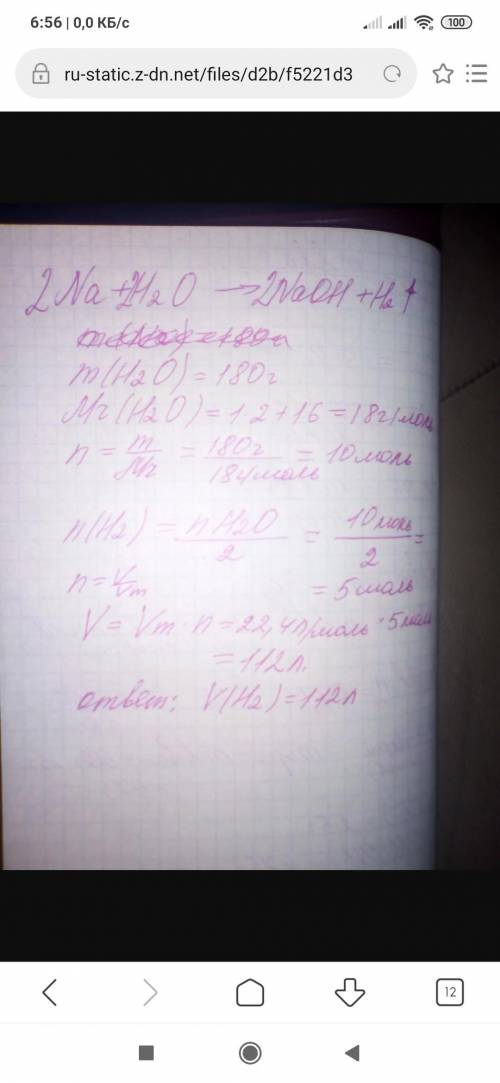 6:56 | 0,0 КБ/с
100
ru-static.z-dn.net/files/d2b/f5221d3
2Na+2H2O → 2NaOH + H2↑
m(H2O) = 180г
Mr(H2O) = 1·2+16 = 18г/моль
n = m/Mr = 180г/18г/моль = 10моль
n(H2) = nH2O/2 = 10моль/2 =
n = V/Vm = 5моль
V = Vm · n = 22,4л/моль · 5моль
= 112л.
ответ: V(H2) = 112л
12